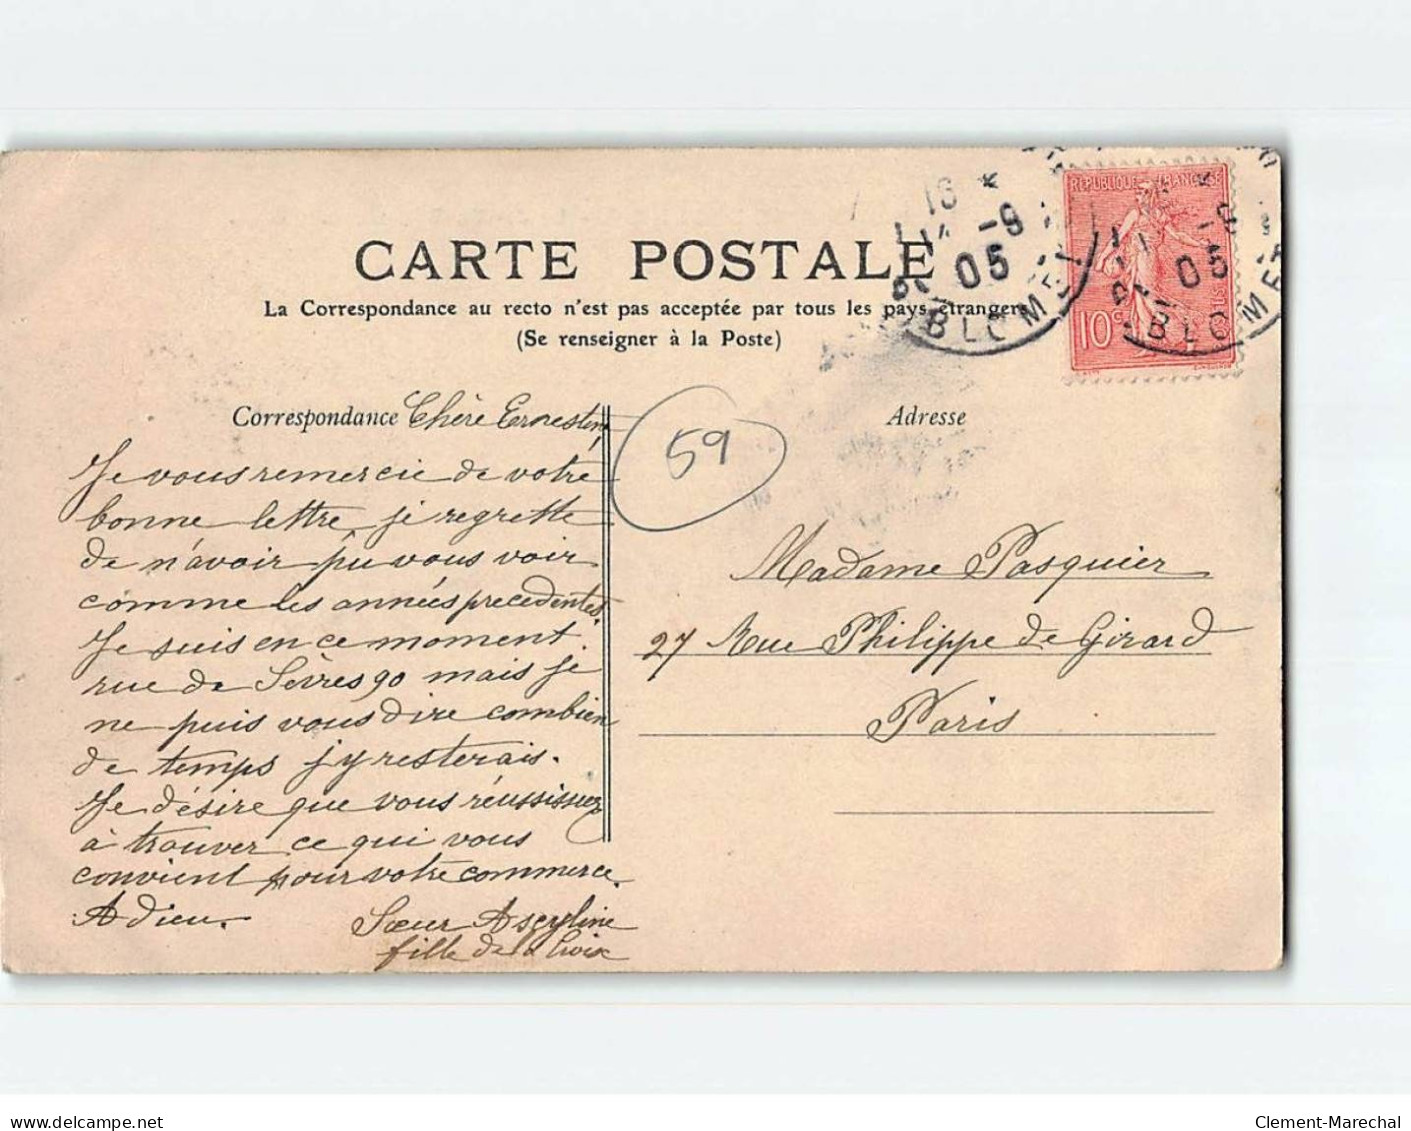 CARTE POSTALE
La Correspondance au recto n'est pas acceptée par tous les pays étrangers
(Se renseigner à la Poste)
RÉPUBLIQUE FRANÇAISE
10c
14 -9
05
BLOMET
-9
05
BLOMET
59
Correspondance Chère Ernestine
Je vous remercie de votre
bonne lettre, je regrette
de n'avoir pû vous voir
comme les années precedentes.
Je suis en ce moment
rue de Sèvres 90 mais je
ne puis vous dire combien
de temps j'y resterais.
Je désire que vous réussissiez
à trouver ce qui vous
convient pour votre commerce.
A Dieu.
Sœur
fille de la Croix
Adresse
Madame Pasquier
27 Rue Philippe de Girard
Paris
delcampe.net
Clement-Marechal